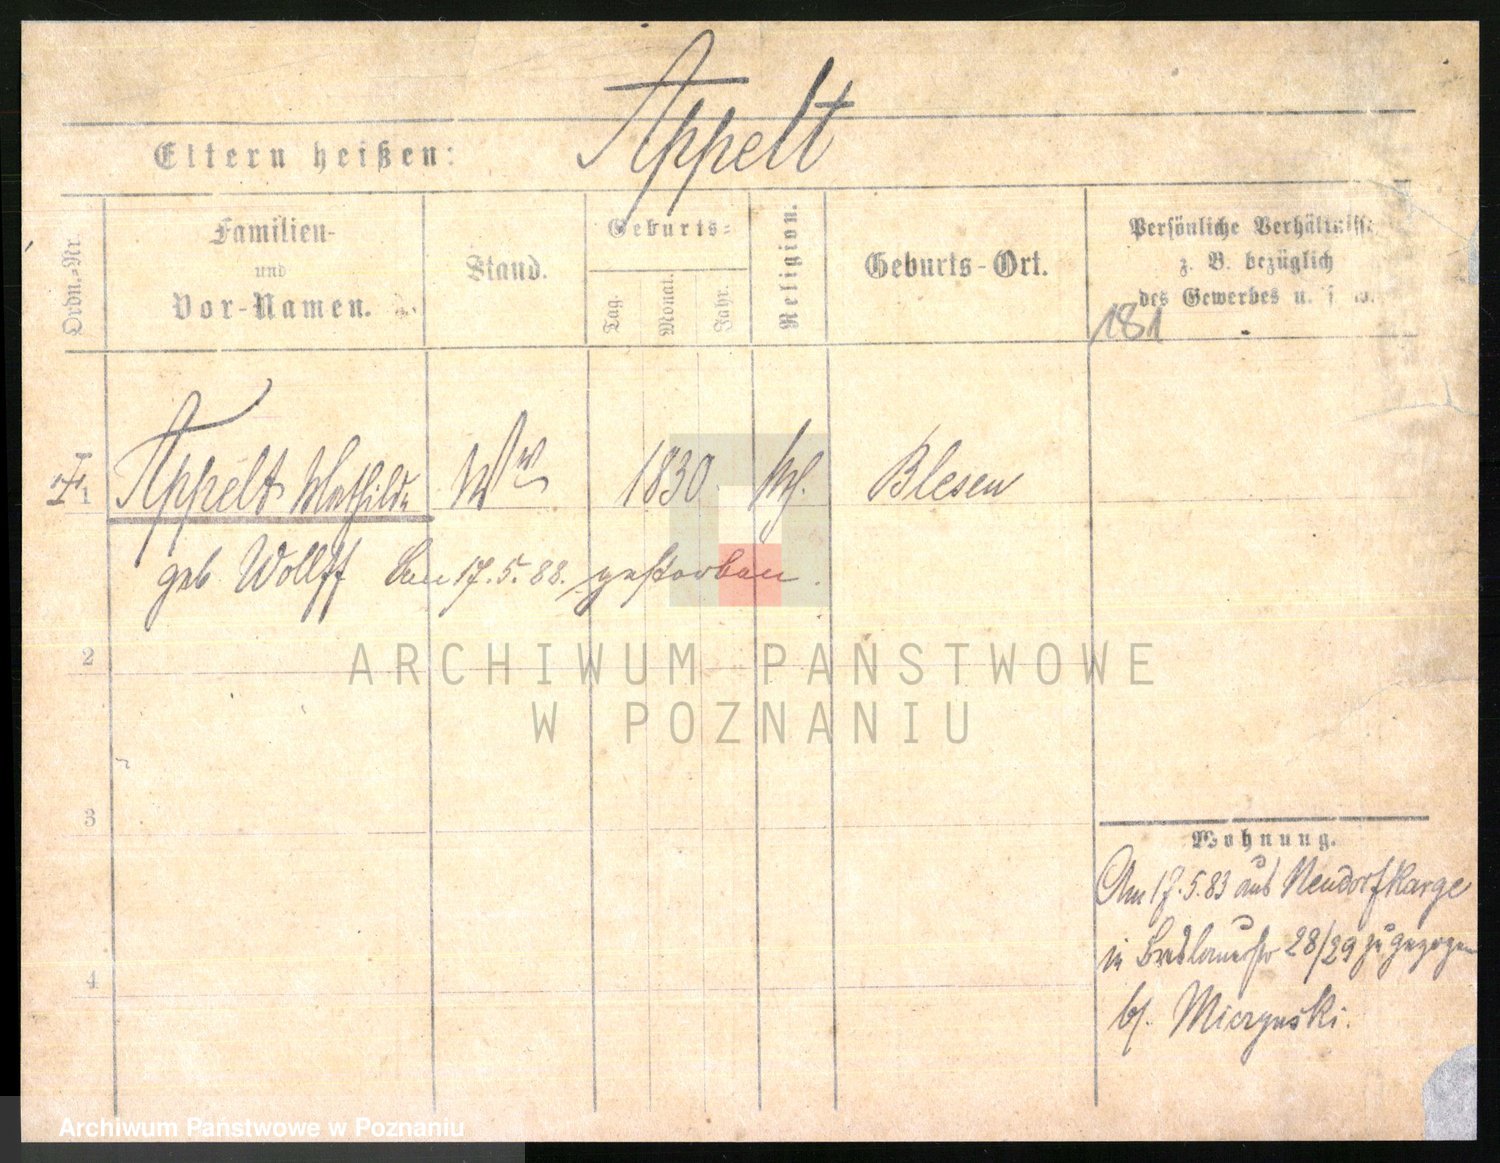 Appelt
Eltern heißen:
Ordn.-Nr.
Familien-
und
Vor-Namen.
Stand.
Geburts-
Tag.
Monat.
Jahr.
Religion.
Geburts-Ort.
Persönliche Verhältnisse
z. B. bezüglich
des Gewerbes u. s. w.
181
1
Appelt Mathilde
Ww
1830
Blesen
geb Wolff den 17.5.88. gestorben.
2
ARCHIWUM PAŃSTWOWE
W POZNANIU
3
Wohnung.
Am 17.5.83 aus Neudorf Karge
in Breslauerstr 28/29 zugezogen
4
b/. Mierzynski.
Archiwum Państwowe w Poznaniu